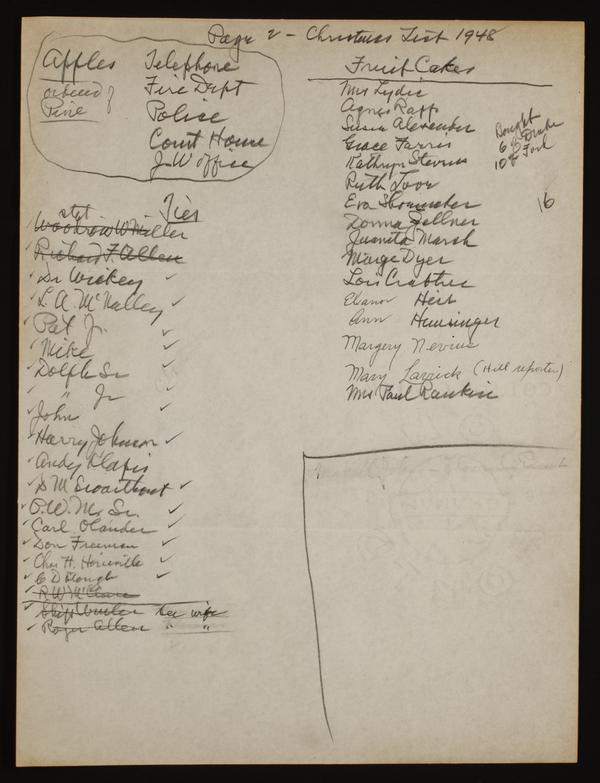 Page 2 - Christmas List 1948
Apples
ordered of
Pirie
Telephone
Fire Dept
Police
Court House
J-W office
Ties
Woodrow W Miller
Richard F. Allen
Dr Wickey
L. A. McNalley
Pat Jr.
Mike
Dolph Sr
" Jr
John
Harry Johnson
Andy
D M Swarthout
P. W. M. Sr.
Carl Olander
Don Freeman
Chas H.
R W McClure
her wife
Roger Allen " "
Fruit Cakes
Mrs Lydic
Agnes Rapp
Susan Alexander
Grace Farris
Kathryn Stevens
Ruth Loov
Eva Shoemaker
Donna Fellner
Juanita Marsh
Marge Dyer
Lois Crabtree
Eleanor Heit
Ann Hunsinger
Margery Nevius
Mary Larrick (Hill reporter)
Mrs Paul Rankin
Bought
6 of Drake
10 of Ford
16